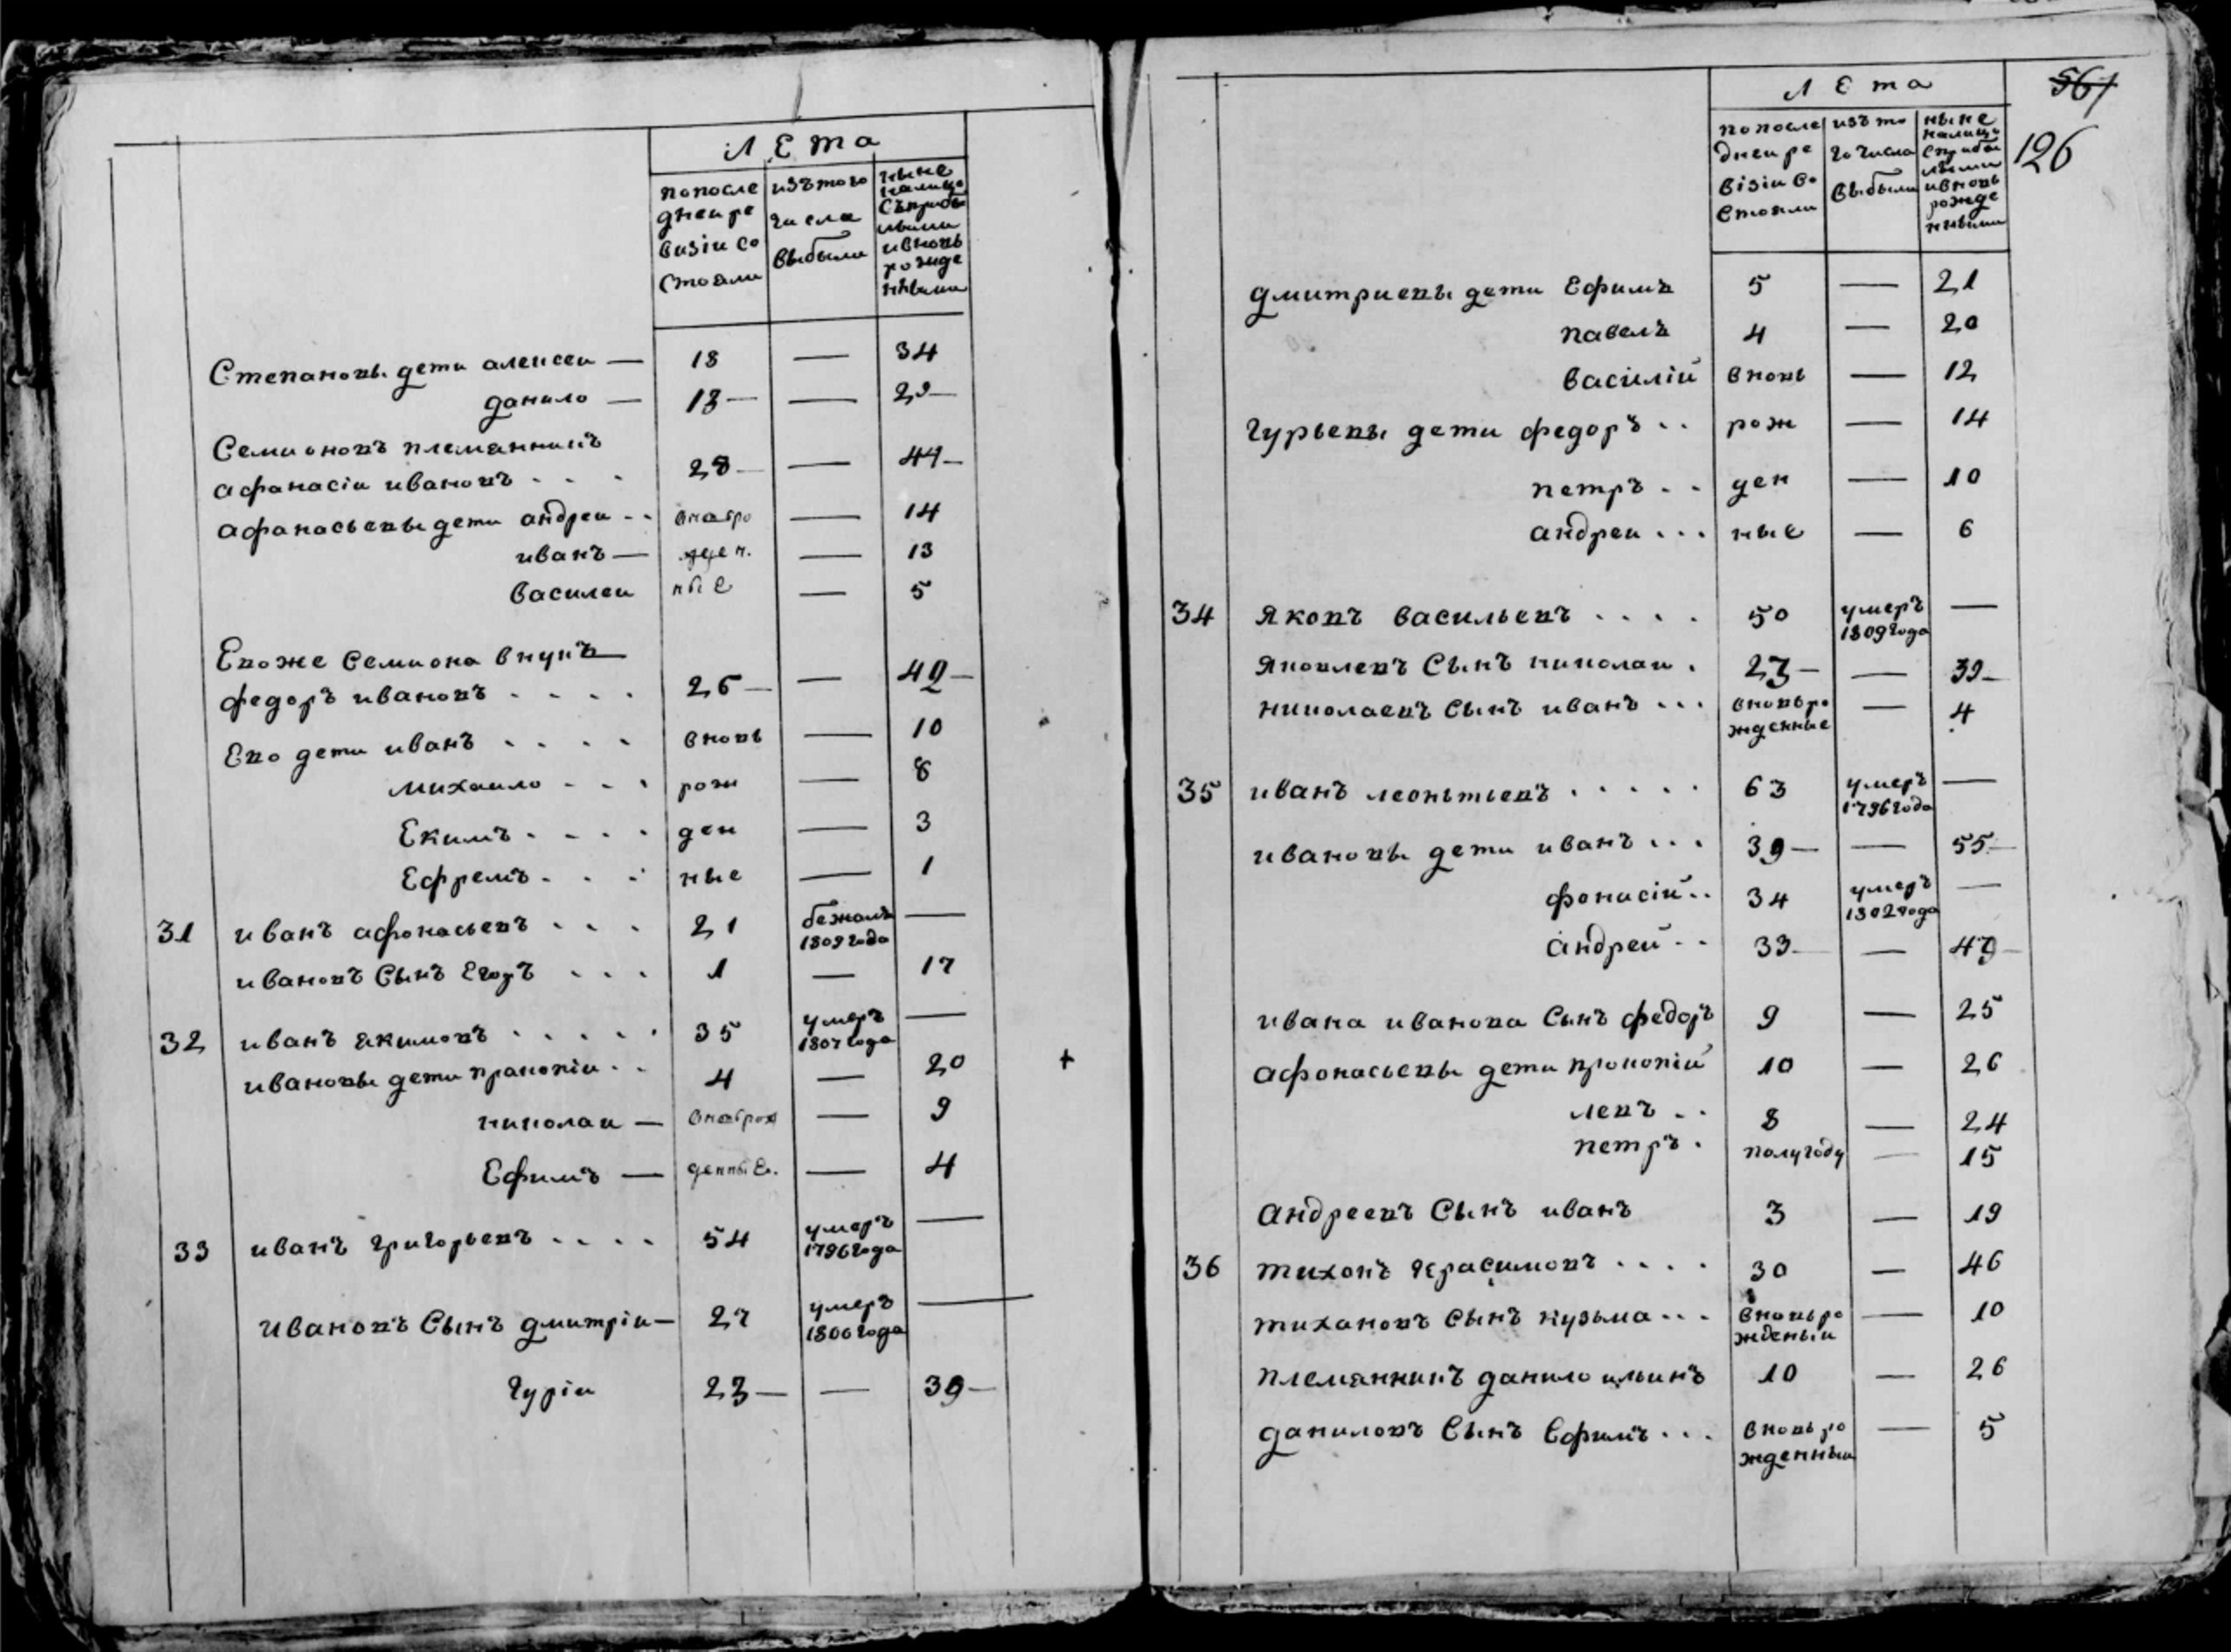 Лета
по после
днеи ре
визiи со
стояли
изъ того
числа
выбыли
ныне
налицо
съ прибы
лыми
и вновь
рожде
нными
Степановы дети алексеи — 18 — 34
данило — 13 — — 29 —
Семионовъ племянникъ
афанасiи ивановъ . . . 28 — — 44 —
афанасьевы дети андреи . . вновъро — 14
иванъ — жден. — 13
василеи ные — 5
Евоже семиона внукъ
федоръ ивановъ . . . . 26 — — 42 —
Ево дети иванъ . . . . вновь — 10
михаило . . . рож — 8
Екимъ . . . . ден — 3
Ефремъ . . . ные — 1
31 иванъ афонасьевъ . . . 21 бежалъ —
1809 года
ивановъ сынъ Егоръ . . . 1 — 17
32 иванъ якимовъ . . . . . 35 умеръ —
1807 года
ивановы дети пракопiи . . 4 — 20
николаи — вновърож — 9
Ефимъ — денные. — 4
33 иванъ григорьевъ . . . . 54 умеръ —
1796 года
ивановъ сынъ дмитрiи — 27 умеръ —
1806 года
гурiи 23 — — 39 —
Лета
561
126
по после
днеи ре
вiзiи со
стояли
изъ то
го числа
выбыли
ныне
налицо
с прибы
лыми
и вновь
рожде
нными
дмитриевы дети Ефимъ 5 — 21
павелъ 4 — 20
василiй вновь — 12
гурьевы дети федоръ . . рож — 14
петръ . . ден — 10
андреи . . . ные — 6
34 яковъ васильевъ . . . . 50 умеръ —
1809 года
яковлевъ сынъ николаи . 23 — — 39 —
николаевъ сынъ иванъ . . . вновь ро — 4
жденные
35 иванъ леонтьевъ . . . . . 63 умеръ —
1796 года
ивановы дети иванъ . . . 39 — — 55 —
фонасiй . . 34 умеръ —
1802 года
андрей . . 33 — — 49 —
ивана иванова сынъ федоръ 9 — 25
афонасьевы дети прокопiй 10 — 26
левъ . . 8 — 24
петръ . полугоду — 15
андреевъ сынъ иванъ 3 — 19
36 тихонъ герасимовъ . . . . 30 — 46
тихановъ сынъ кузьма . . . вновь ро — 10
жденыи
племянникъ данило ильинъ 10 — 26
даниловъ сынъ Ефимъ . . . вновь ро — 5
жденныи